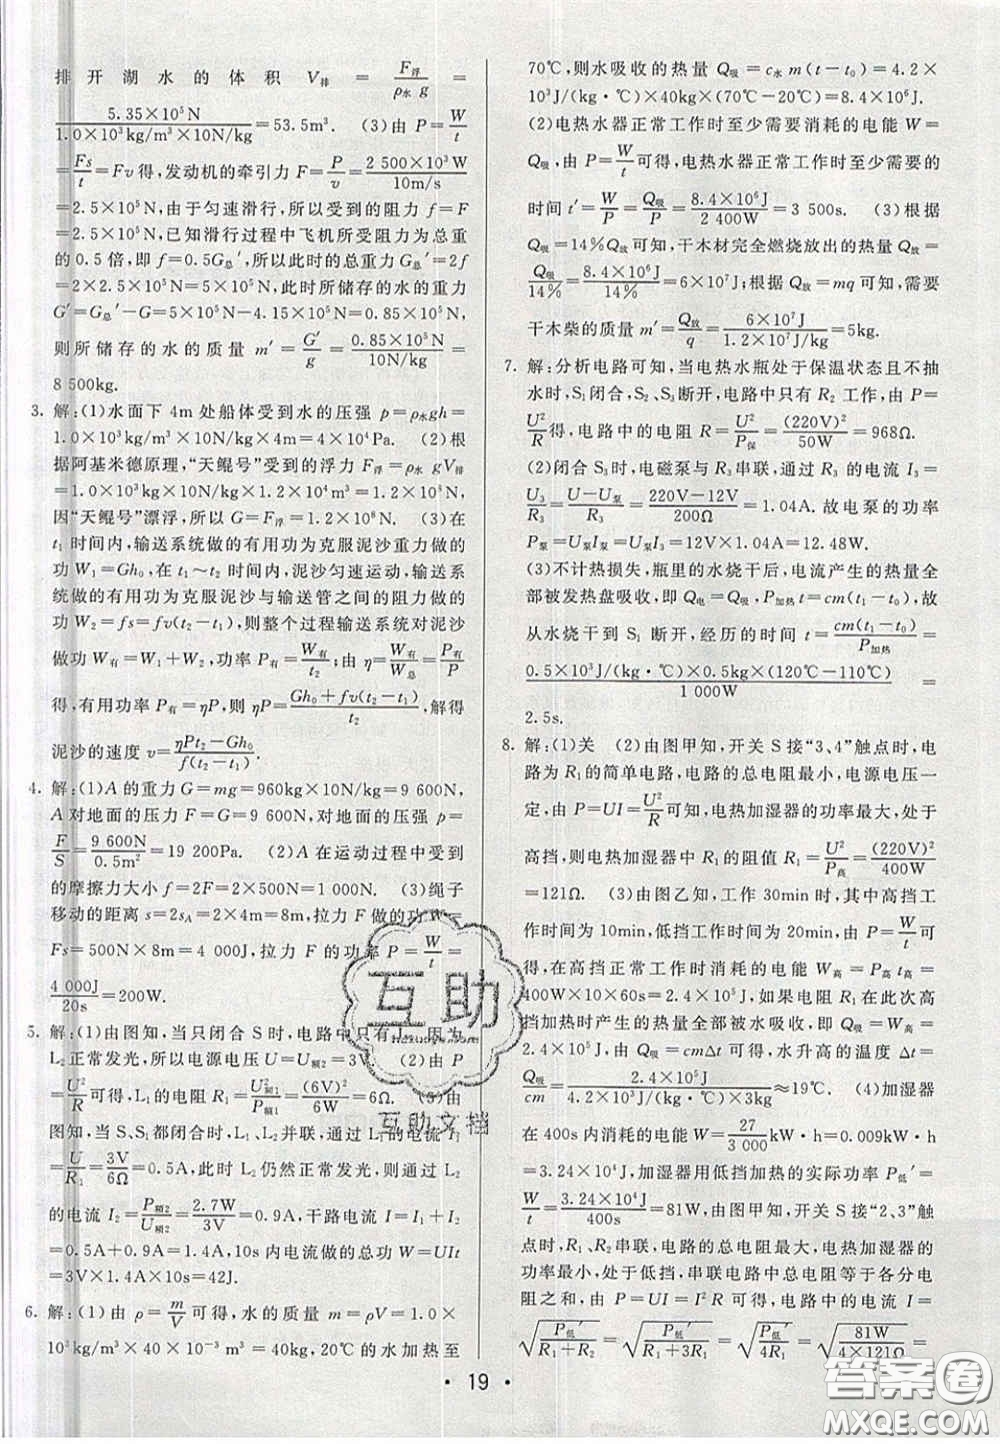 排开湖水的体积 V排 = F浮/(ρ水 g) =
5.35×10⁵N/(1.0×10³kg/m³×10N/kg)=53.5m³. (3)由 P=W/t
=Fs/t=Fv得,发动机的牵引力 F=P/v=2 500×10³W/10m/s
=2.5×10⁵N,由于匀速滑行,所以受到的阻力 f=F
=2.5×10⁵N,已知滑行过程中飞机所受阻力为总重
的0.5倍,即 f=0.5G总′,所以此时的总重力 G总′=2f
=2×2.5×10⁵N=5×10⁵N,此时所储存的水的重力
G′=G总′-G=5×10⁵N-4.15×10⁵N=0.85×10⁵N,
则所储存的水的质量 m′=G′/g=0.85×10⁵N/10N/kg=
8 500kg.
3. 解:(1)水面下4m处船体受到水的压强 p=ρ水gh=
1.0×10³kg/m³×10N/kg×4m=4×10⁴Pa. (2)根
据阿基米德原理,“天鲲号”受到的浮力 F浮=ρ水 gV排
=1.0×10³kg/m³×10N/kg×1.2×10⁴m³=1.2×10⁸N,
因“天鲲号”漂浮,所以 G=F浮=1.2×10⁸N. (3)在
t₁时间内,输送系统做的有用功为克服泥沙重力做的
功 W₁=Gh₀,在 t₁~t₂ 时间内,泥沙匀速运动,输送系
统做的有用功为克服泥沙与输送管之间的阻力做的
功 W₂=fs=fv(t₂-t₁),则整个过程输送系统对泥沙
做功 W有=W₁+W₂,功率 P有=W有/t₂;由 η=W有/W总=P有/P
得,有用功率 P有=ηP,则 ηP=(Gh₀+fv(t₂-t₁))/t₂,解得
泥沙的速度 v=(ηPt₂-Gh₀)/(f(t₂-t₁)).
4. 解:(1)A的重力 G=mg=960kg×10N/kg=9 600N,
A对地面的压力 F=G=9 600N,对地面的压强 p=
F/S=9 600N/0.5m²=19 200Pa. (2)A在运动过程中受到
的摩擦力大小 f=2F=2×500N=1 000N. (3)绳子
移动的距离 s=2sA=2×4m=8m,拉力 F 做的功 W=
Fs=500N×8m=4 000J,拉力 F 的功率 P=W/t=
4 000J/20s=200W.
5. 解:(1)由图知,当只闭合S时,电路中只有 L₂,因为
L₂正常发光,所以电源电压U=U额2=3V. (2)由 P
=U²/R可得,L₁的电阻 R₁=U额1²/P额1=(6V)²/6W=6Ω. (3)由
图知,当S、S₁都闭合时,L₁、L₂并联,通过 L₁的电流 I₁
=U/R₁=3V/6Ω=0.5A,此时 L₂仍然正常发光,则通过 L₂
的电流 I₂=P额2/U额2=2.7W/3V=0.9A,干路电流 I=I₁+I₂
=0.5A+0.9A=1.4A,10s内电流做的总功 W=UIt
=3V×1.4A×10s=42J.
6. 解:(1)由 ρ=m/V可得,水的质量 m=ρV=1.0×
10³kg/m³×40×10⁻³ m³=40kg,20℃的水加热至
70℃,则水吸收的热量 Q吸=c水 m(t-t₀)=4.2×
10³J/(kg·℃)×40kg×(70℃-20℃)=8.4×10⁶J.
(2)电热水器正常工作时至少需要消耗的电能 W=
Q吸,由 P=W/t可得,电热水器正常工作时至少需要的
时间 t′=W/P=Q吸/P=8.4×10⁶J/2 400W=3 500s. (3)根据
Q吸=14%Q放可知,干木材完全燃烧放出的热量 Q放
=Q吸/14%=8.4×10⁶J/14%=6×10⁷J;根据 Q放=mq可知,需要
干木柴的质量 m′=Q放/q=6×10⁷J/1.2×10⁷J/kg=5kg.
7. 解:分析电路可知,当电热水瓶处于保温状态且不抽
水时,S₁闭合,S₂、S₃断开,电路中只有 R₂工作,由P=
U²/R得,电路中的电阻 R=U²/P保=(220V)²/50W=968Ω.
(2)闭合S₃时,电磁泵与 R₃串联,通过 R₃的电流 I₃=
U₃/R₃=(U-U泵)/R₃=(220V-12V)/200Ω=1.04A. 故电泵的功率
P泵=U泵I泵=U泵I₃=12V×1.04A=12.48W.
(3)不计热损失,瓶里的水烧干后,电流产生的热量全
部被发热盘吸收,即 Q电=Q吸,P加热t=cm(t₁-t₀),故
从水烧干到S₁断开,经历的时间 t=cm(t₁-t₀)/P加热=
0.5×10³J/(kg·℃)×0.5kg×(120℃-110℃)/1 000W=
2.5s.
8. 解:(1)关 (2)由图甲知,开关S接“3、4”触点时,电
路为 R₁的简单电路,电路的总电阻最小,电源电压一
定,由 P=UI=U²/R可知,电热加湿器的功率最大,处于
高挡,则电热加湿器中 R₁的阻值 R₁=U²/P高=(220V)²/400W
=121Ω. (3)由图乙知,工作30min时,其中高挡工
作时间为10min,低挡工作时间为20min,由 P=W/t可
得,在高挡正常工作时消耗的电能 W高=P高 t高=
400W×10×60s=2.4×10⁵J,如果电阻 R₁在此次高挡
加热时产生的热量全部被水吸收,即 Q吸=W高=
2.4×10⁵J,由 Q吸=cmΔt可得,水升高的温度 Δt=
Q吸/cm=2.4×10⁵J/(4.2×10³J/(kg·℃)×3kg)≈19℃. (4)加湿器
在400s内消耗的电能 W=27/3 000kW·h=0.009kW·h
=3.24×10⁴J,加湿器用低挡加热的实际功率 P低′=
W/t=3.24×10⁴J/400s=81W,由图甲知,开关S接“2、3”触
点时,R₁、R₂串联,电路的总电阻最大,电热加湿器的
功率最小,处于低挡,串联电路中总电阻等于各分电
阻之和,由 P=UI=I²R可得,电路中的电流 I=
√(P低′/(R₁+R₂))=√(P低′/(3R₁+R₁))=√(P低′/4R₁)=√(81W/(4×121Ω))=
· 19 ·
互助
互助文档
答案圈
MXQE.COM